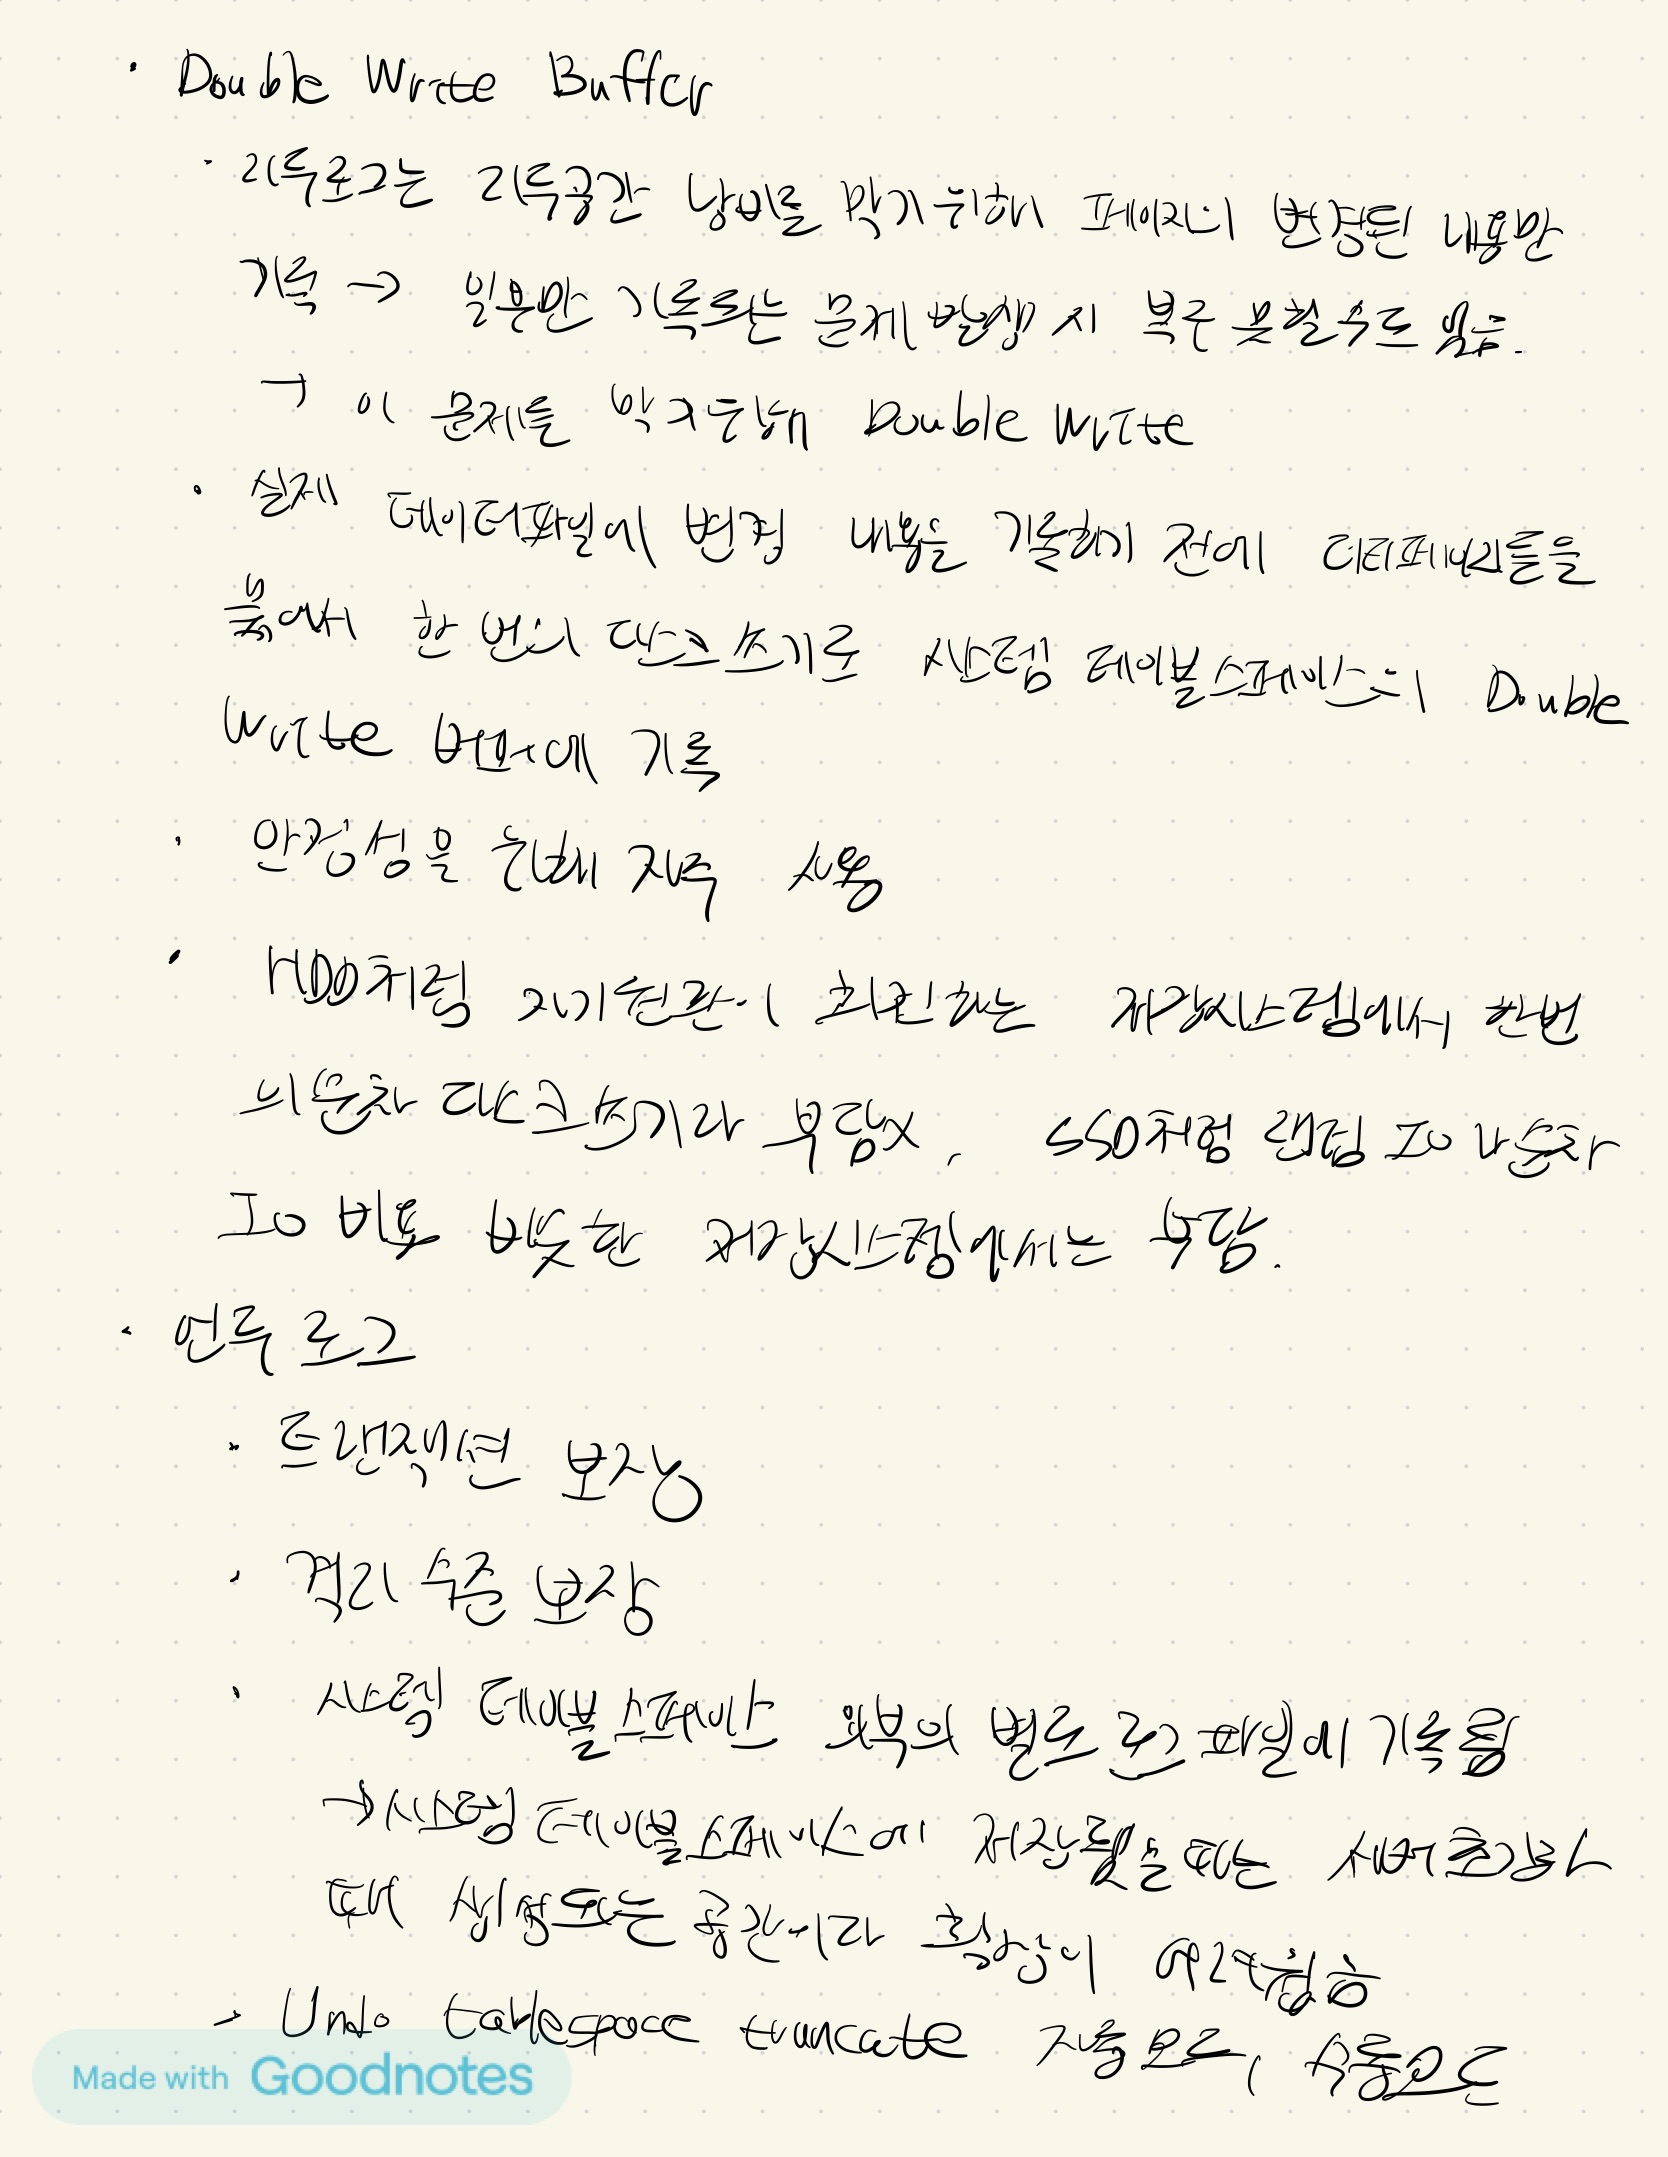 · Double Write Buffer
· 리두로그는 리두공간 낭비를 막기위해 페이지의 변경된 내용만
기록 → 일부만 기록되는 문제 발생 시 복구 못할수도 있음.
→ 이 문제를 막기위해 Double Write
· 실제 데이터파일에 변경 내용을 기록하기 전에 더티페이지들을
묶어서 한 번의 디스크 쓰기로 시스템 테이블스페이스의 Double
Write 버퍼에 기록
· 안정성을 위해 자주 사용
· HDD처럼 자기원판이 회전하는 저장시스템에서 한번
의 순차 디스크 쓰기라 부담x, SSD처럼 랜덤 IO나 순차
IO 비용 비슷한 저장시스템에서는 부담.
· 언두 로그
· 트랜잭션 보장
· 격리 수준 보장
· 시스템 테이블스페이스 외부의 별도 로그 파일에 기록됨
→ 시스템 테이블스페이스에 저장됐을때는 서버초기화
때 생성되는 공간이라 확장이 어려웠음
· Undo tablespace truncate 자동모드, 수동모드
Made with Goodnotes